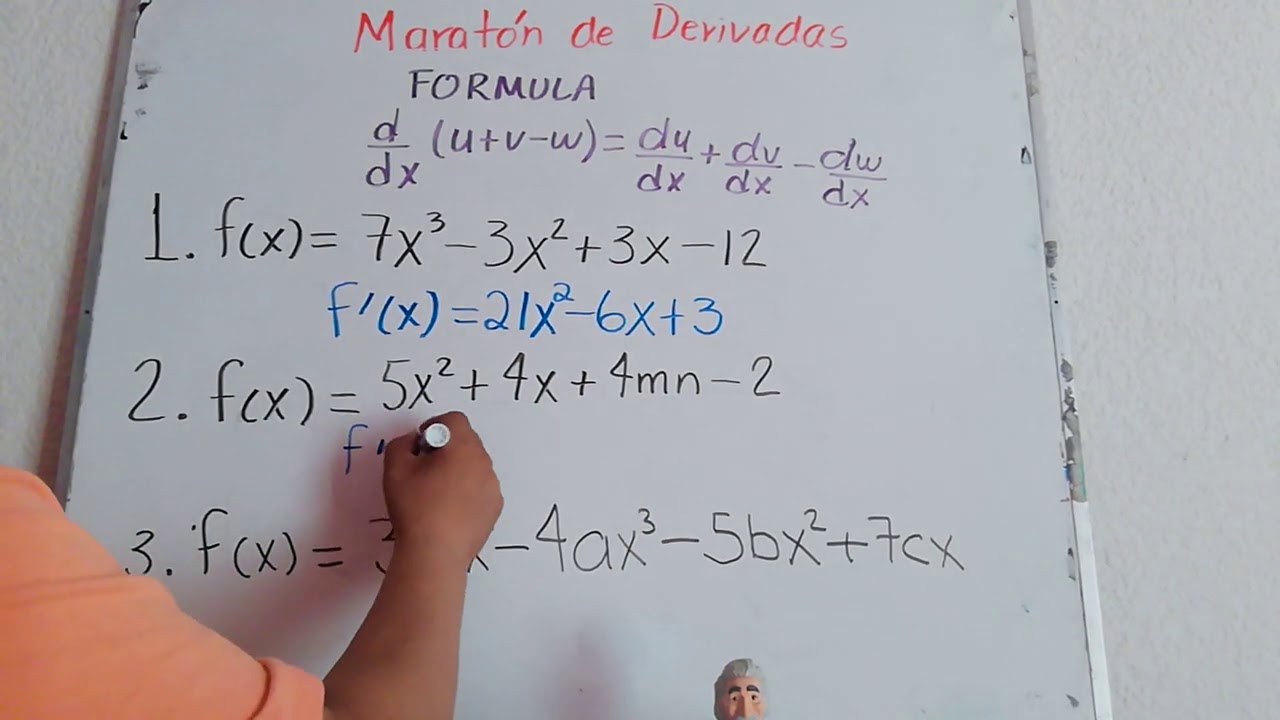 Maratón de Derivadas
FORMULA
d/dx (u+v-w) = du/dx + dv/dx - dw/dx
1. f(x) = 7x³ - 3x² + 3x - 12
f'(x) = 21x² - 6x + 3
2. f(x) = 5x² + 4x + 4mn - 2
f'
3. f(x) = - 4ax³ - 5bx² + 7cx